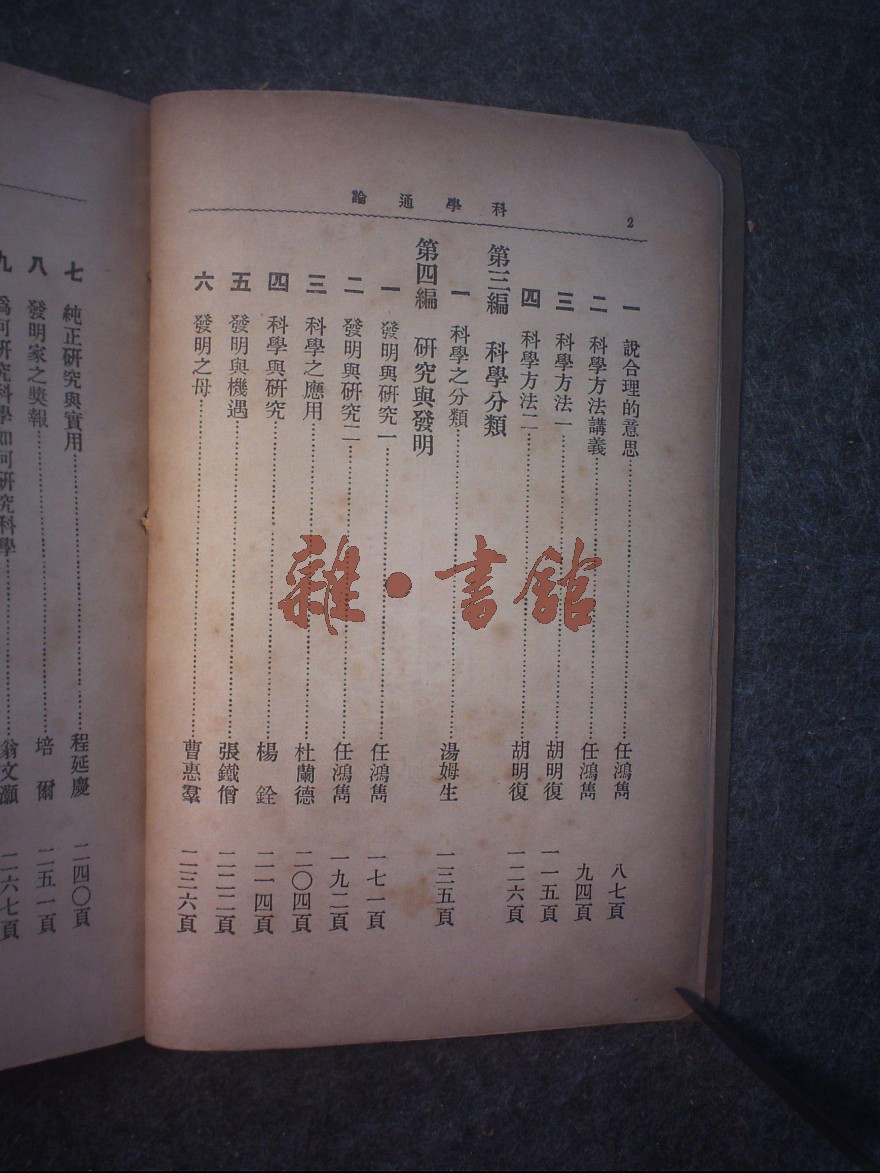 科學通論
2
一 說合理的意思 任鴻雋 八七頁
二 科學方法講義 任鴻雋 九四頁
三 科學方法一 胡明復 一一五頁
四 科學方法二 胡明復 一二六頁
第三編 科學分類
一 科學之分類 湯姆生 一三五頁
第四編 研究與發明
一 發明與研究一 任鴻雋 一七一頁
二 發明與研究二 任鴻雋 一九二頁
三 科學之應用 杜蘭德 二〇四頁
四 科學與研究 楊銓 二一四頁
五 發明與機遇 張鐵僧 二二二頁
六 發明之母 曹惠羣 二三六頁
七 純正研究與實用 程延慶 二四〇頁
八 發明家之獎報 培爾 二五一頁
九 爲何研究科學如何研究科學 翁文灝 二六七頁
雜·書館